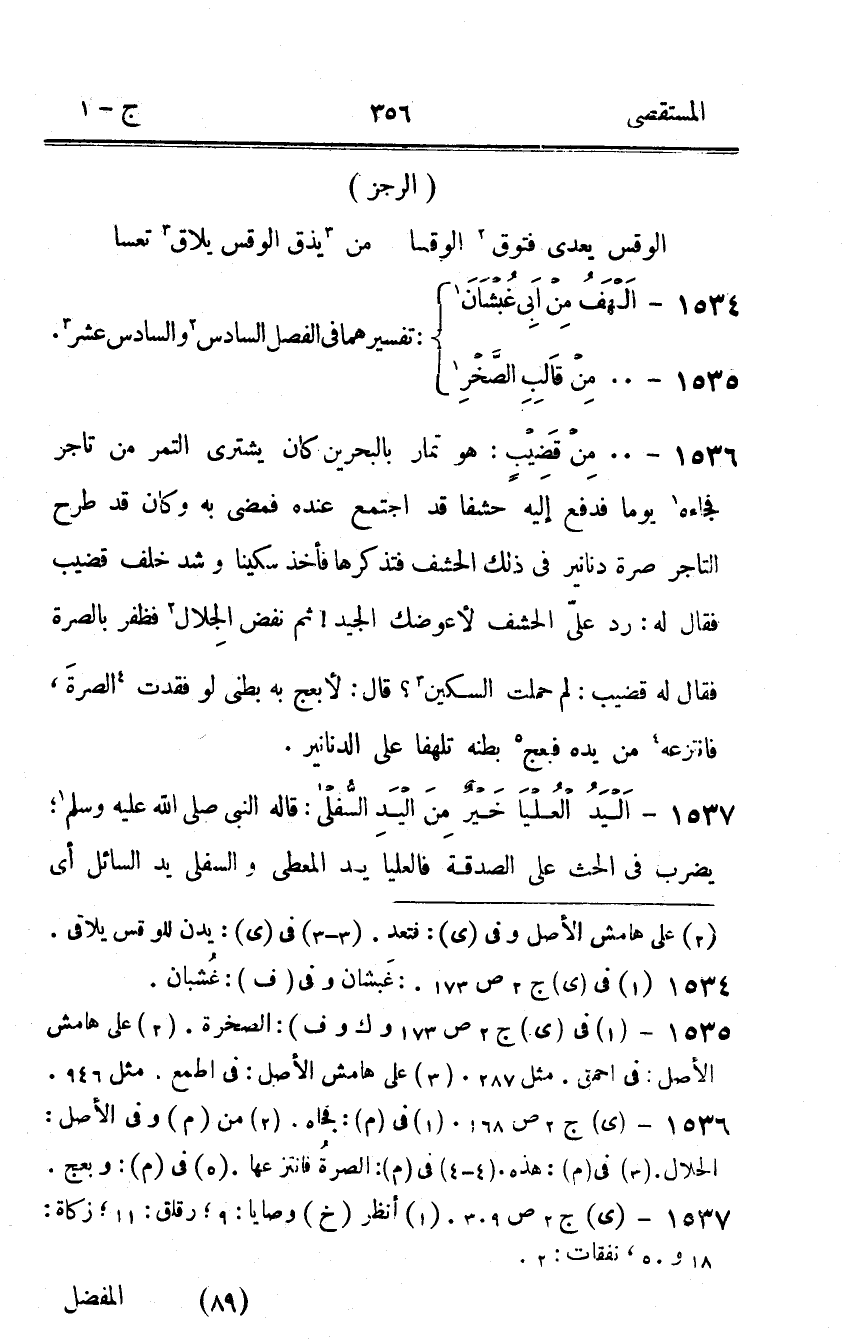 المستقصى ٣٥٦ ج – ١
( الرجز )
الوقس يعدى فتوق٢ الوقسا من ٣يذق الوقس يلاق٣ تعسا
١٥٣٤ – اَلْهَفُ مِنْ اَبِى غُبْشَانَ١
: تفسيرهما فى الفصل السادس٢ والسادس عشر٣ .
١٥٣٥ – ٠٠ مِنْ قَالِبِ الصَّخْرِ١
١٥٣٦ – ٠٠ مِنْ قَضِيْبٍ : هو تمار بالبحرين كان يشترى التمر من تاجر
فجاءه١ يوما فدفع إليه حشفا قد اجتمع عنده فمضى به وكان قد طرح
التاجر صرة دنانير فى ذلك الحشف فتذكرها فأخذ سكينا و شد خلف قضيب
فقال له : رد علىّ الحشف لأعوضك الجيد ! ثم نفض الجِلال٢ فظفر بالصرة
فقال له قضيب : لم حملت السكين٣ ؟ قال : لأبعج به بطنى لو فقدت ٤الصرةَ ،
فانتزعه٤ من يده فبعج٥ بطنه تلهفا على الدنانير .
١٥٣٧ – اَلْيَدُ الْعُلْيَا خَيْرٌ مِنَ الْيَدِ السُّفْلٰى : قاله النبى صلى الله عليه وسلم١ ؛
يضرب فى الحث على الصدقة فالعليا يد المعطى و السفلى يد السائل أى
(٢) على هامش الأصل و فى (ى) : فتعد . (٣–٣) فى (ى) : يدن للوقس يلاقى .
١٥٣٤ (١) فى (ى) ج ٢ ص ١٧٣ . : غَبشان و فى ( ف ) : غُشبان .
١٥٣٥ – (١) فى (ى) ج ٢ ص ١٧٣ و ك و ف ) : الصخرة . (٢) على هامش
الأصل : فى احمق . مثل ٢٨٧ . (٣) على هامش الأصل : فى اطمع . مثل ٩٤٦ .
١٥٣٦ – (ى) ج ٢ ص ١٦٨ . (١) فى (م) : فجاه . (٢) من (م) و فى الأصل :
الحلال . (٣) فى (م) : هذه . (٤–٤) فى (م) : الصرةُ فانتزعها . (٥) فى (م) : و بعج .
١٥٣٧ – (ى) ج ٢ ص ٣٠٩ . (١) أنظر (خ) وصايا : ٩ ؛ رقاق : ١١ ؛ زكاة :
١٨ و ٥٠ ، نفقات : ٢ .
(٨٩) المفضل